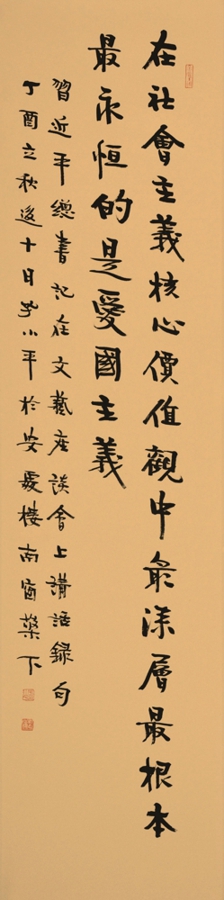 在社會主義核心價值觀中最深層最根本
最永恒的是愛國主義
習近平總書記在文藝座談會上講話錄句
丁酉立秋後十日 小平於安處樓南窗藥下